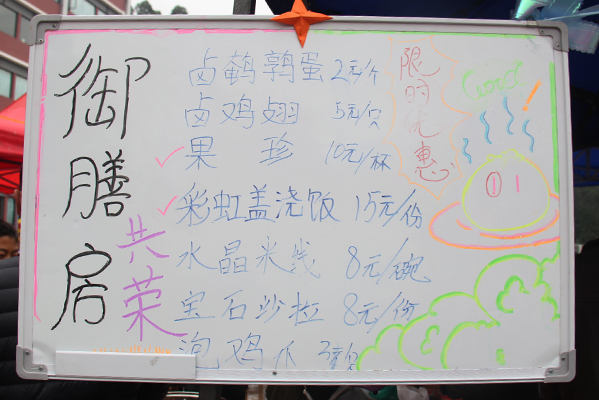 御膳房
共荣
卤鹌鹑蛋 2元/个
卤鸡翅 5元/只
果珍 10元/杯
彩虹盖浇饭 15元/份
水晶米线 8元/碗
宝石沙拉 8元/份
泡鸡爪
限时优惠